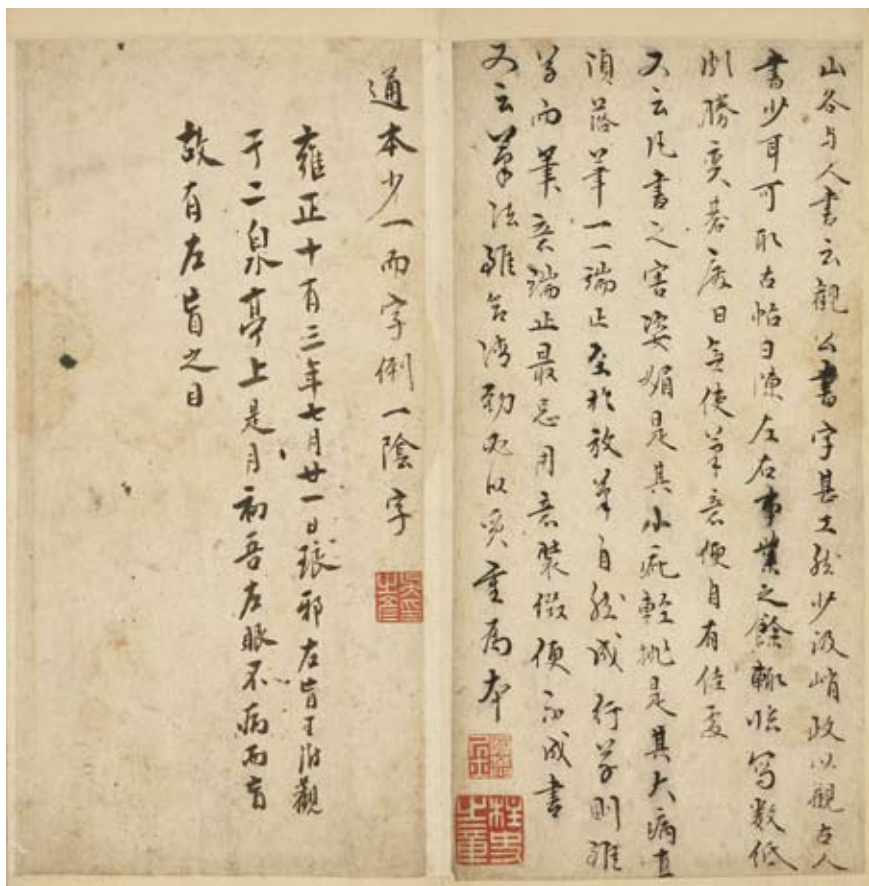 山谷与人書云觀公書字甚工然少波峭政以觀古人
書少耳可取古帖日陳左右事業之餘輒臨寫數紙
頗勝奕碁廢日無使筆意便自有佳處
又云凡書之害姿媚是其小疵輕挑是其大病直
須落筆一一端正至於放筆自然成行草則雖
草而筆意端正最忌用意裝綴便不成書
又云筆法雖欲清勁必以質重爲本
通本少一而字倒一陰字
雍正十有三年七月廿一日琅邪左盲王澍觀
于二泉亭上是月初吾左眼不病而盲
故有左盲之目